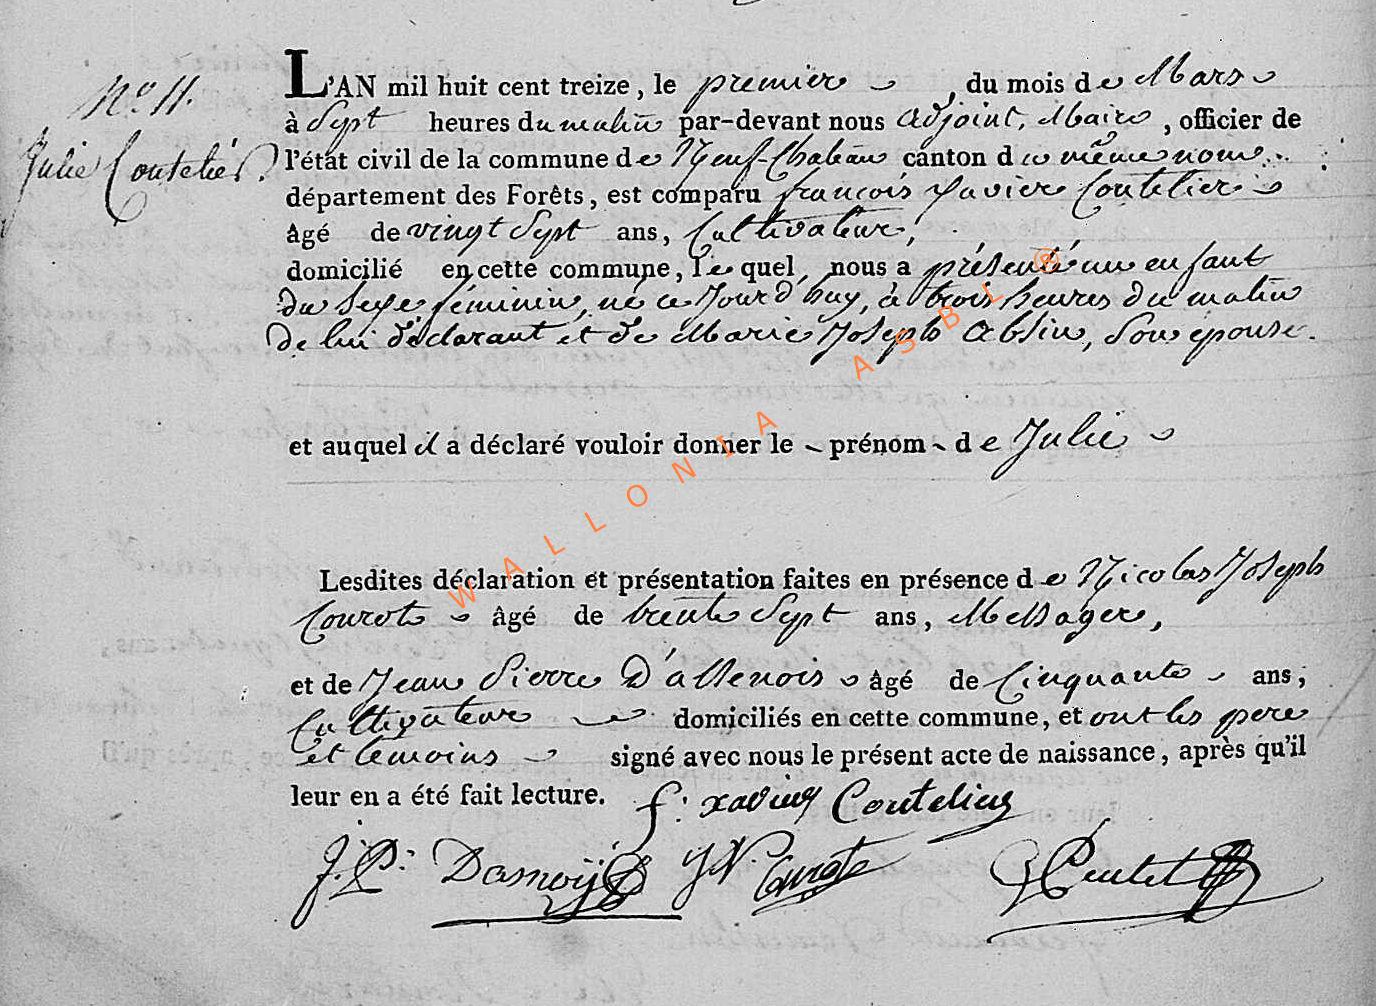 No. 11.
Julie Coutelier.
L'AN mil huit cent treize, le premier , du mois de Mars
à Sept heures du matin par-devant nous adjoint, Maire, officier de
l'état civil de la commune de Neuf-Chateau canton du même nom
département des Forêts, est comparu francois Xavier Coutelier
âgé de vingt Sept ans, Cultivateur,
domicilié en cette commune, lequel nous a présenté un enfant
du Sexe féminin, né ce Jourd'huy, à trois heures du matin
De lui déclarant et de Marie Joseph Ablin, Son épouse.
et auquel il a déclaré vouloir donner le prénom de Julie
Lesdites déclaration et présentation faites en présence de Nicolas Joseph
Courote âgé de trente Sept ans, Messager,
et de Jean Pierre D'assenois âgé de Cinquante ans,
Cultivateur domiciliés en cette commune, et ont les pere
et temoins signé avec nous le présent acte de naissance, après qu'il
leur en a été fait lecture. f: xavier Coutelier
J. P. Dasnoÿ J N Courote
WALLONIA ASBL ®